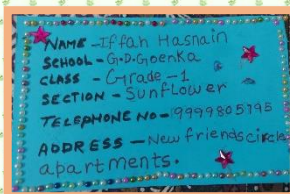 NAME - Iffah Hasnain
SCHOOL - G.D.Goenka
CLASS - Grade - 1
SECTION - Sunflower
TELEPHONE NO - 9999805795
ADDRESS - New friends circle
apartments.